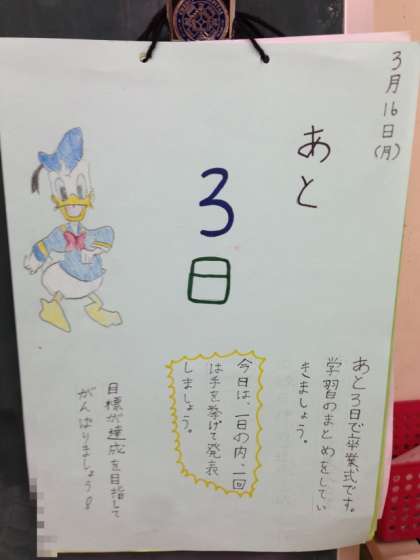 3月16日(月)
あと
3
日
あと3日で卒業式です。
学習のまとめをしてい
きましょう。
今日は、一日の内、一回
は手を挙げて発表
しましょう。
目標が達成を目指して
がんばりましょう!